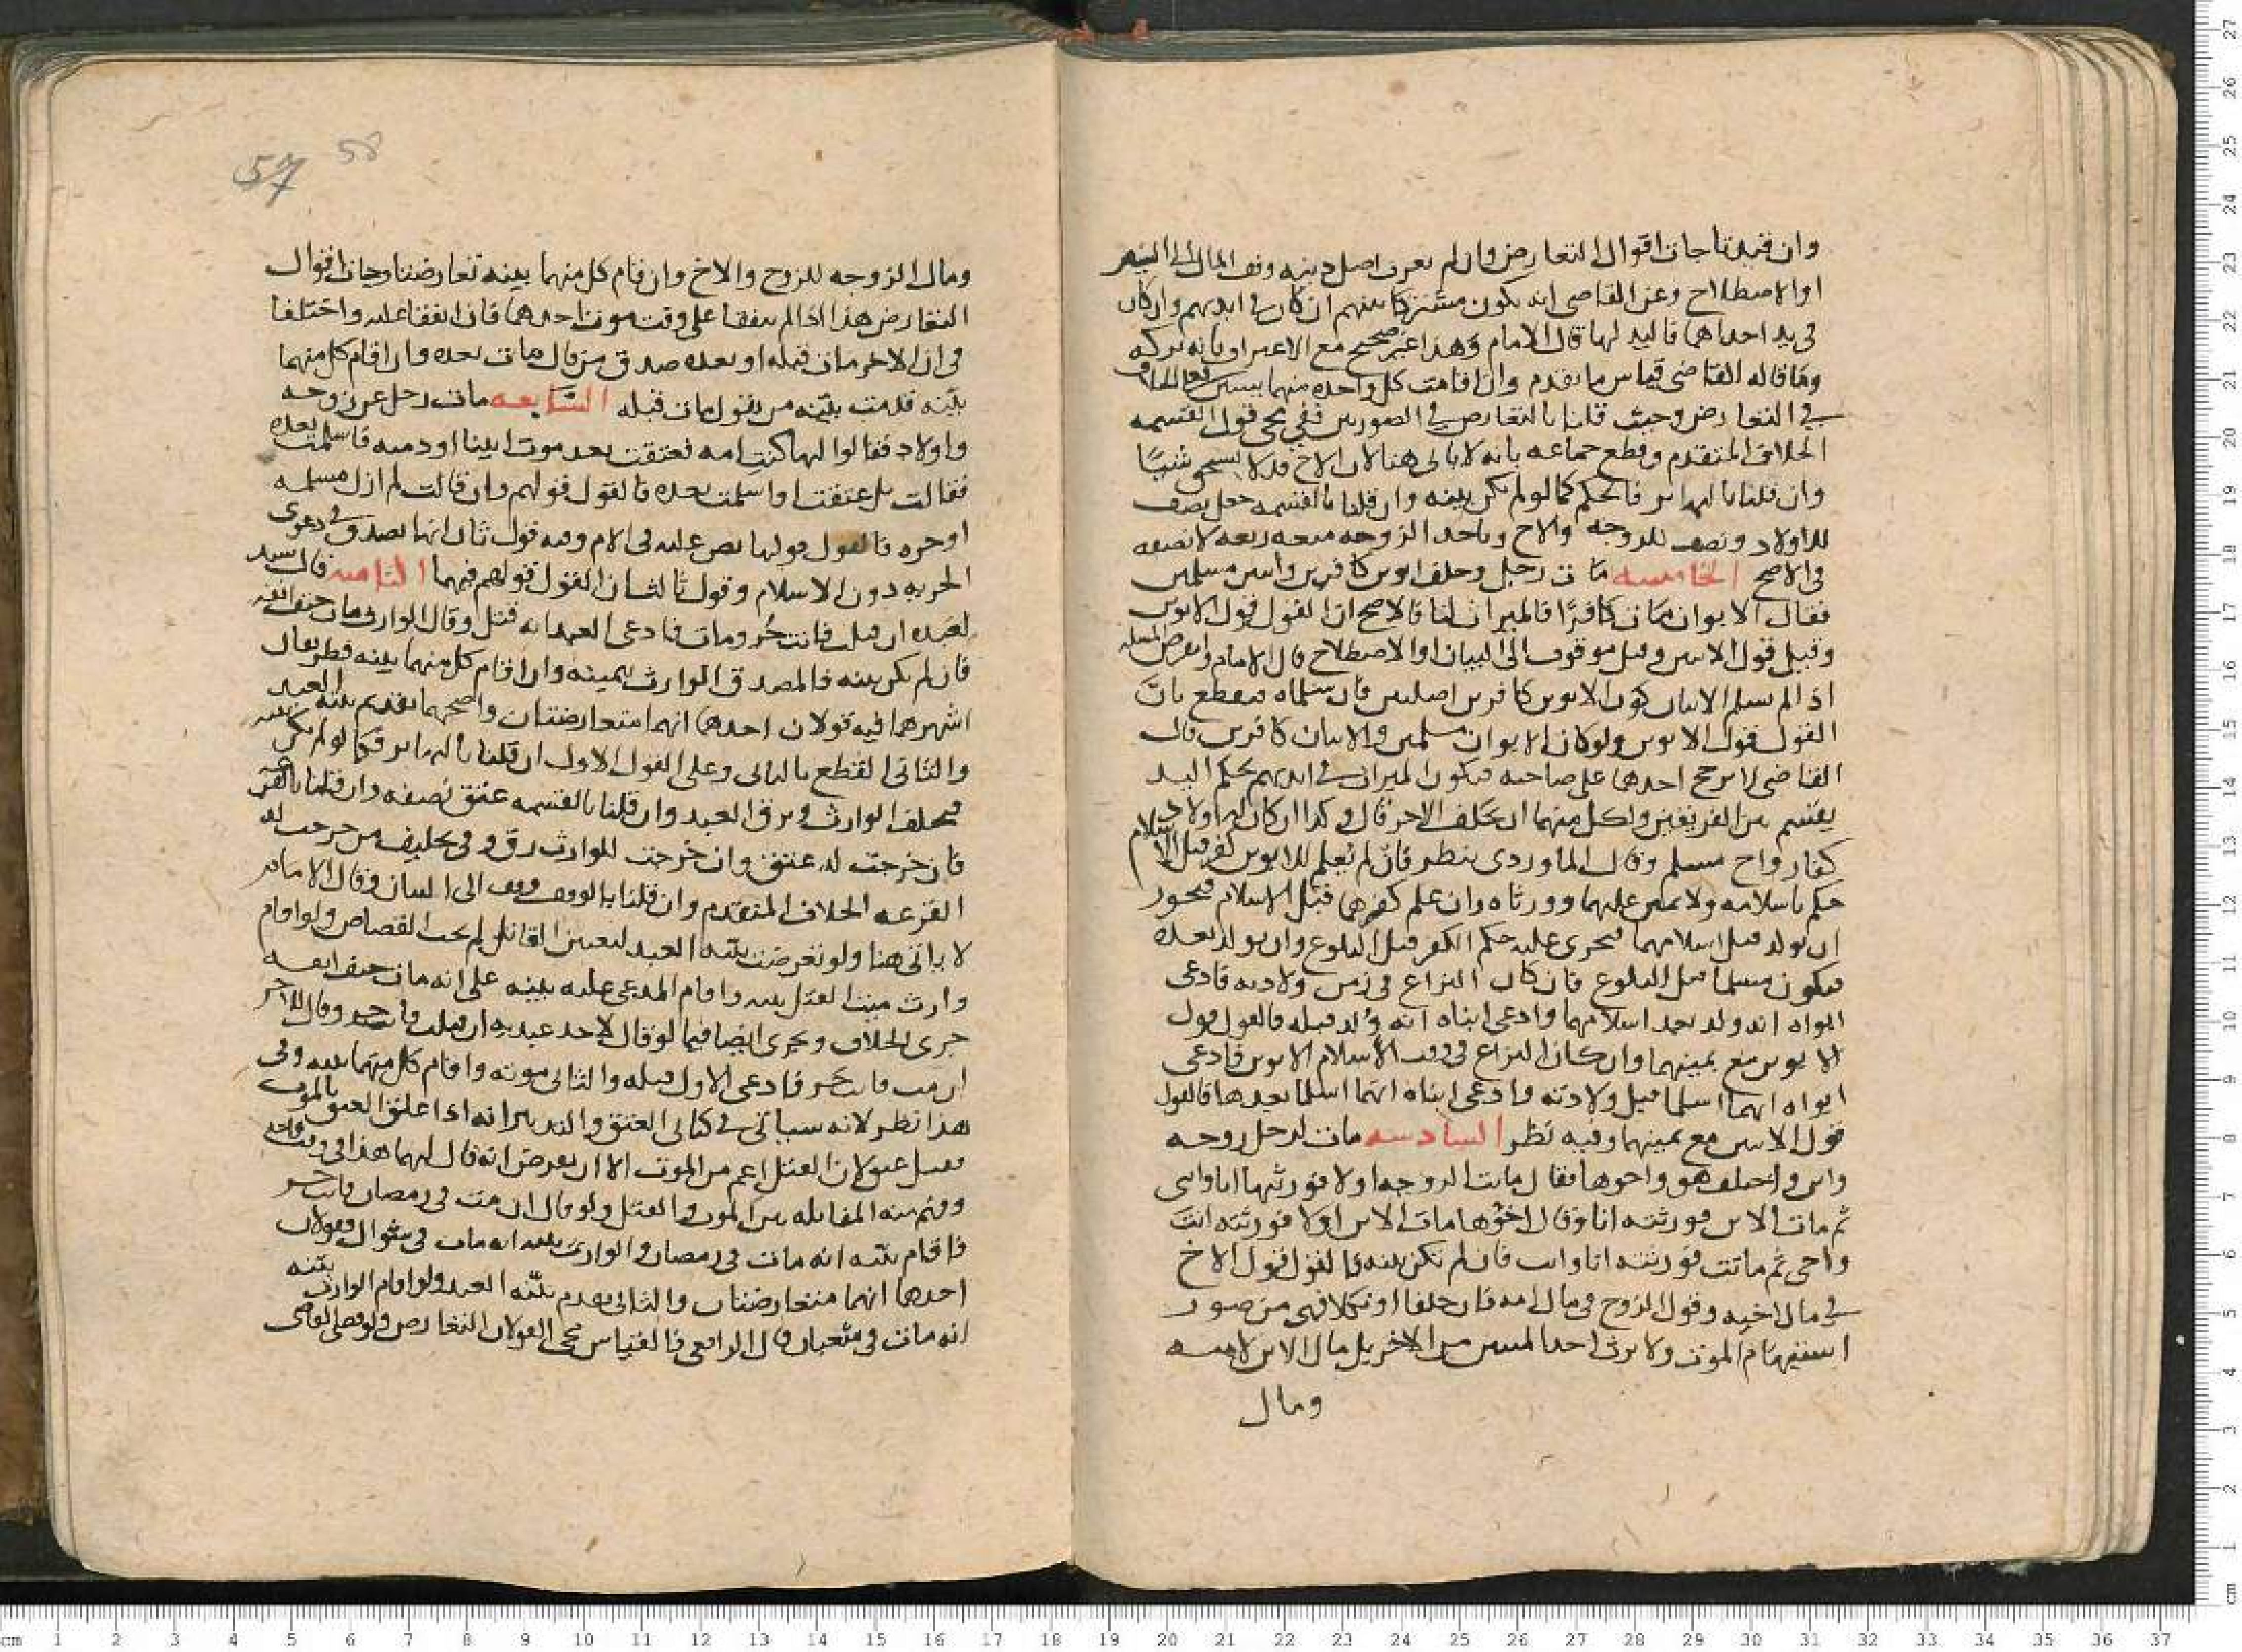 وان قيدتا جات اقوال التعارض وان لم يعرف اصل دينه وقف المال الى التبين
او الاصطلاح وعن القاضي انه يكون مشتركا بينهم ان كان في ايديهم وان كان
في يد احداهما فاليد لها قال الامام وهذا غير صحيح مع الاعتراف بانه تركه
وما قاله القاضي قياس ما تقدم وان اقامت كل واحده منهما بينتين فعلى الخلاف
في التعارض وحيث قلنا بالتعارض في الصورتين ففي مجي قول القسمه
الخلاف المتقدم وقطع جماعه بانه لا ياتي هنا لان الاخ قد لا يستحق شيا
وان قلنا بالتهاتر فالحكم كما لو لم تكن بينه وان قلنا بالقسمه جعل نصف
للاولاد ونصف للزوجه والاخ وياخذ الزوجه منه ربعه لا نصفه
في الاصح الخامسه مات رجل وخلف ابوين كافرين وابنين مسلمين
فقال الابوان مات كافرا فالميراث لنا فالاصح ان القول قول الابوين
وقيل قول الابنين وقيل موقوف الى البيان او الاصطلاح قال الامام وتعرض المسله
اذا لم يسلم الابنان كون الابوين كافرين اصليين فان سلماه فيقطع بان
القول قول الابوين ولو كان الابوان مسلمين والابنان كافرين قال
القاضي لا يرجح احدهما على صاحبه فيكون الميراث في ايديهم بحكم اليد
يقسم بين الفريقين ولكل منهما ان يحلف الاخر قال وكذا ان كان له اولاد
كفار واخ مسلم وقال الماوردي ينظر فان لم يعلم للابوين كفر قبل الاسلام
حكم باسلامه ولا يمين عليهما وورثاه وان علم كفرهما قبل الاسلام فيجوز
ان يولد قبل اسلامهما فيجري عليه حكم الكفر قبل البلوغ وان يولد بعده
فيكون مسلما قبل البلوغ فان كان النزاع في زمن ولادته فادعى
ابواه انه ولد بعد اسلامهما وادعى ابناه انه ولد قبله فالقول قول
الابوين مع يمينهما وان كان النزاع في وقت الاسلام الابوين فادعى
ابواه انهما اسلما قبل ولادته وادعى ابناه انهما اسلما بعدها فالقول
قول الابنين مع يمينهما وفيه نظر السادسه مات لرجل زوجه
وابن واختلف هو واخوها فقال ماتت الزوجه اولا فورثتها انا وابني
ثم مات الابن فورثته انا وقال اخوها مات الابن اولا فورثته انت
واختي ثم ماتت فورثته انا وانت فان لم تكن بينه فالقول قول الاخ
في مال اخته وقول الزوج في مال ابنه فان حلفا او نكلا فهي من صور
استبهام الموت ولا يرث احد الميتين من الاخر بل مال الابن لابيه
ومال
57 58
ومال الزوجه للزوج والاخ وان اقام كل منهما بينه تعارضتا وجات اقوال
التعارض هذا اذا لم يتفقا على وقت موت احدهما فان اتفقا عليه واختلفا
في ان الاخر مات قبله او بعده صدق من قال مات بعده وان اقام كل منهما
بينه قدمت بينه من يقول مات قبله السابعه مات رجل عن زوجه
واولاد فقالوا لها كنت امه فعتقت بعد موت ابينا او ذميه فاسلمت بعده
فقالت بل عتقت او اسلمت بعده فالقول قولهم وان قالت لم ازل مسلمه
او حره فالقول قولها نص عليه في الام وفيه قول ثان انها تصدق في دعوى
الحريه دون الاسلام وقول ثالث ان القول قولهم فيهما الثامنه قال سيد
لعبده ان قتلت فانت حر ومات فادعى العبد انه قتل وقال الوارث مات حتف انفه
فان لم تكن بينه فالمصدق الوارث بيمينه وان اقام كل منهما بينه فطريقان
اشهرهما فيه قولان احدهما انهما متعارضتان واصحهما تقديم بينه العبد
والثاني القطع بالثاني وعلى القول الاول ان قلنا بالتهاتر فكما لو لم تكن بينه
فيحلف الوارث ويرق العبد وان قلنا بالقسمه عتق نصفه وان قلنا بالقرعه
فان خرجت له عتق وان خرجت للوارث رق وفي تحليف من خرجت له
القرعه الخلاف المتقدم وان قلنا بالوقف وقف الى البيان وقال الامام
لا ياتي هنا ولو تعرضت بينه العبد لتعيين القاتل لم يجب القصاص ولو اقام
وارث ميت القتل بينه واقام المدعى عليه بينه على انه مات حتف انفه
جرى الخلاف ويجري ايضا فيما لو قال لاحد عبديه ان قتلت فانت حر وقال للاخر
ان مت فانت حر فادعى الاول قتله والثاني موته واقام كل منهما بينه وفي
هذا نظر لانه سياتي في كتابي العتق والتدبير انه اذا علق العتق بالموت
فقتل عتق لان القتل اعم من الموت الا ان يفرض انه قال لهما هذا في وقت واحد
وفهم منه المقابله بين الموت والقتل ولو قال ان مت في رمضان فانت حر
فاقام بينه انه مات في رمضان والوارث بينه انه مات في شوال فقولان
احدهما انهما متعارضتان والثاني تقدم بينه العبد ولو اقام الوارث بينه
انه مات في شعبان قال الرافعي فالقياس مجي القولان التعارض ولو قضى القاضي